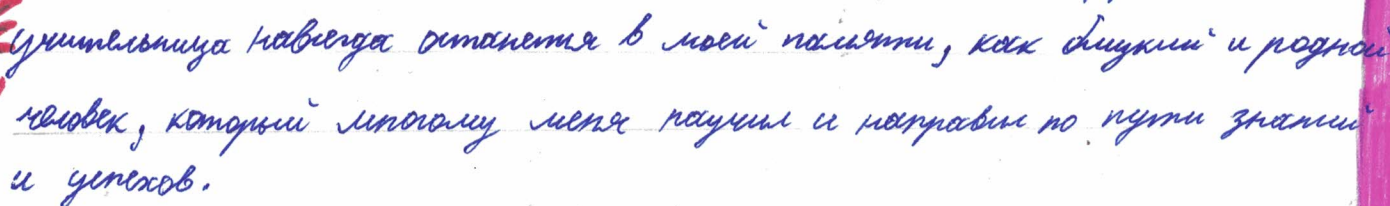 учительница навсегда останется в моей памяти, как близкий и родной
человек, который многому меня научил и направил по пути знаний
и успехов.